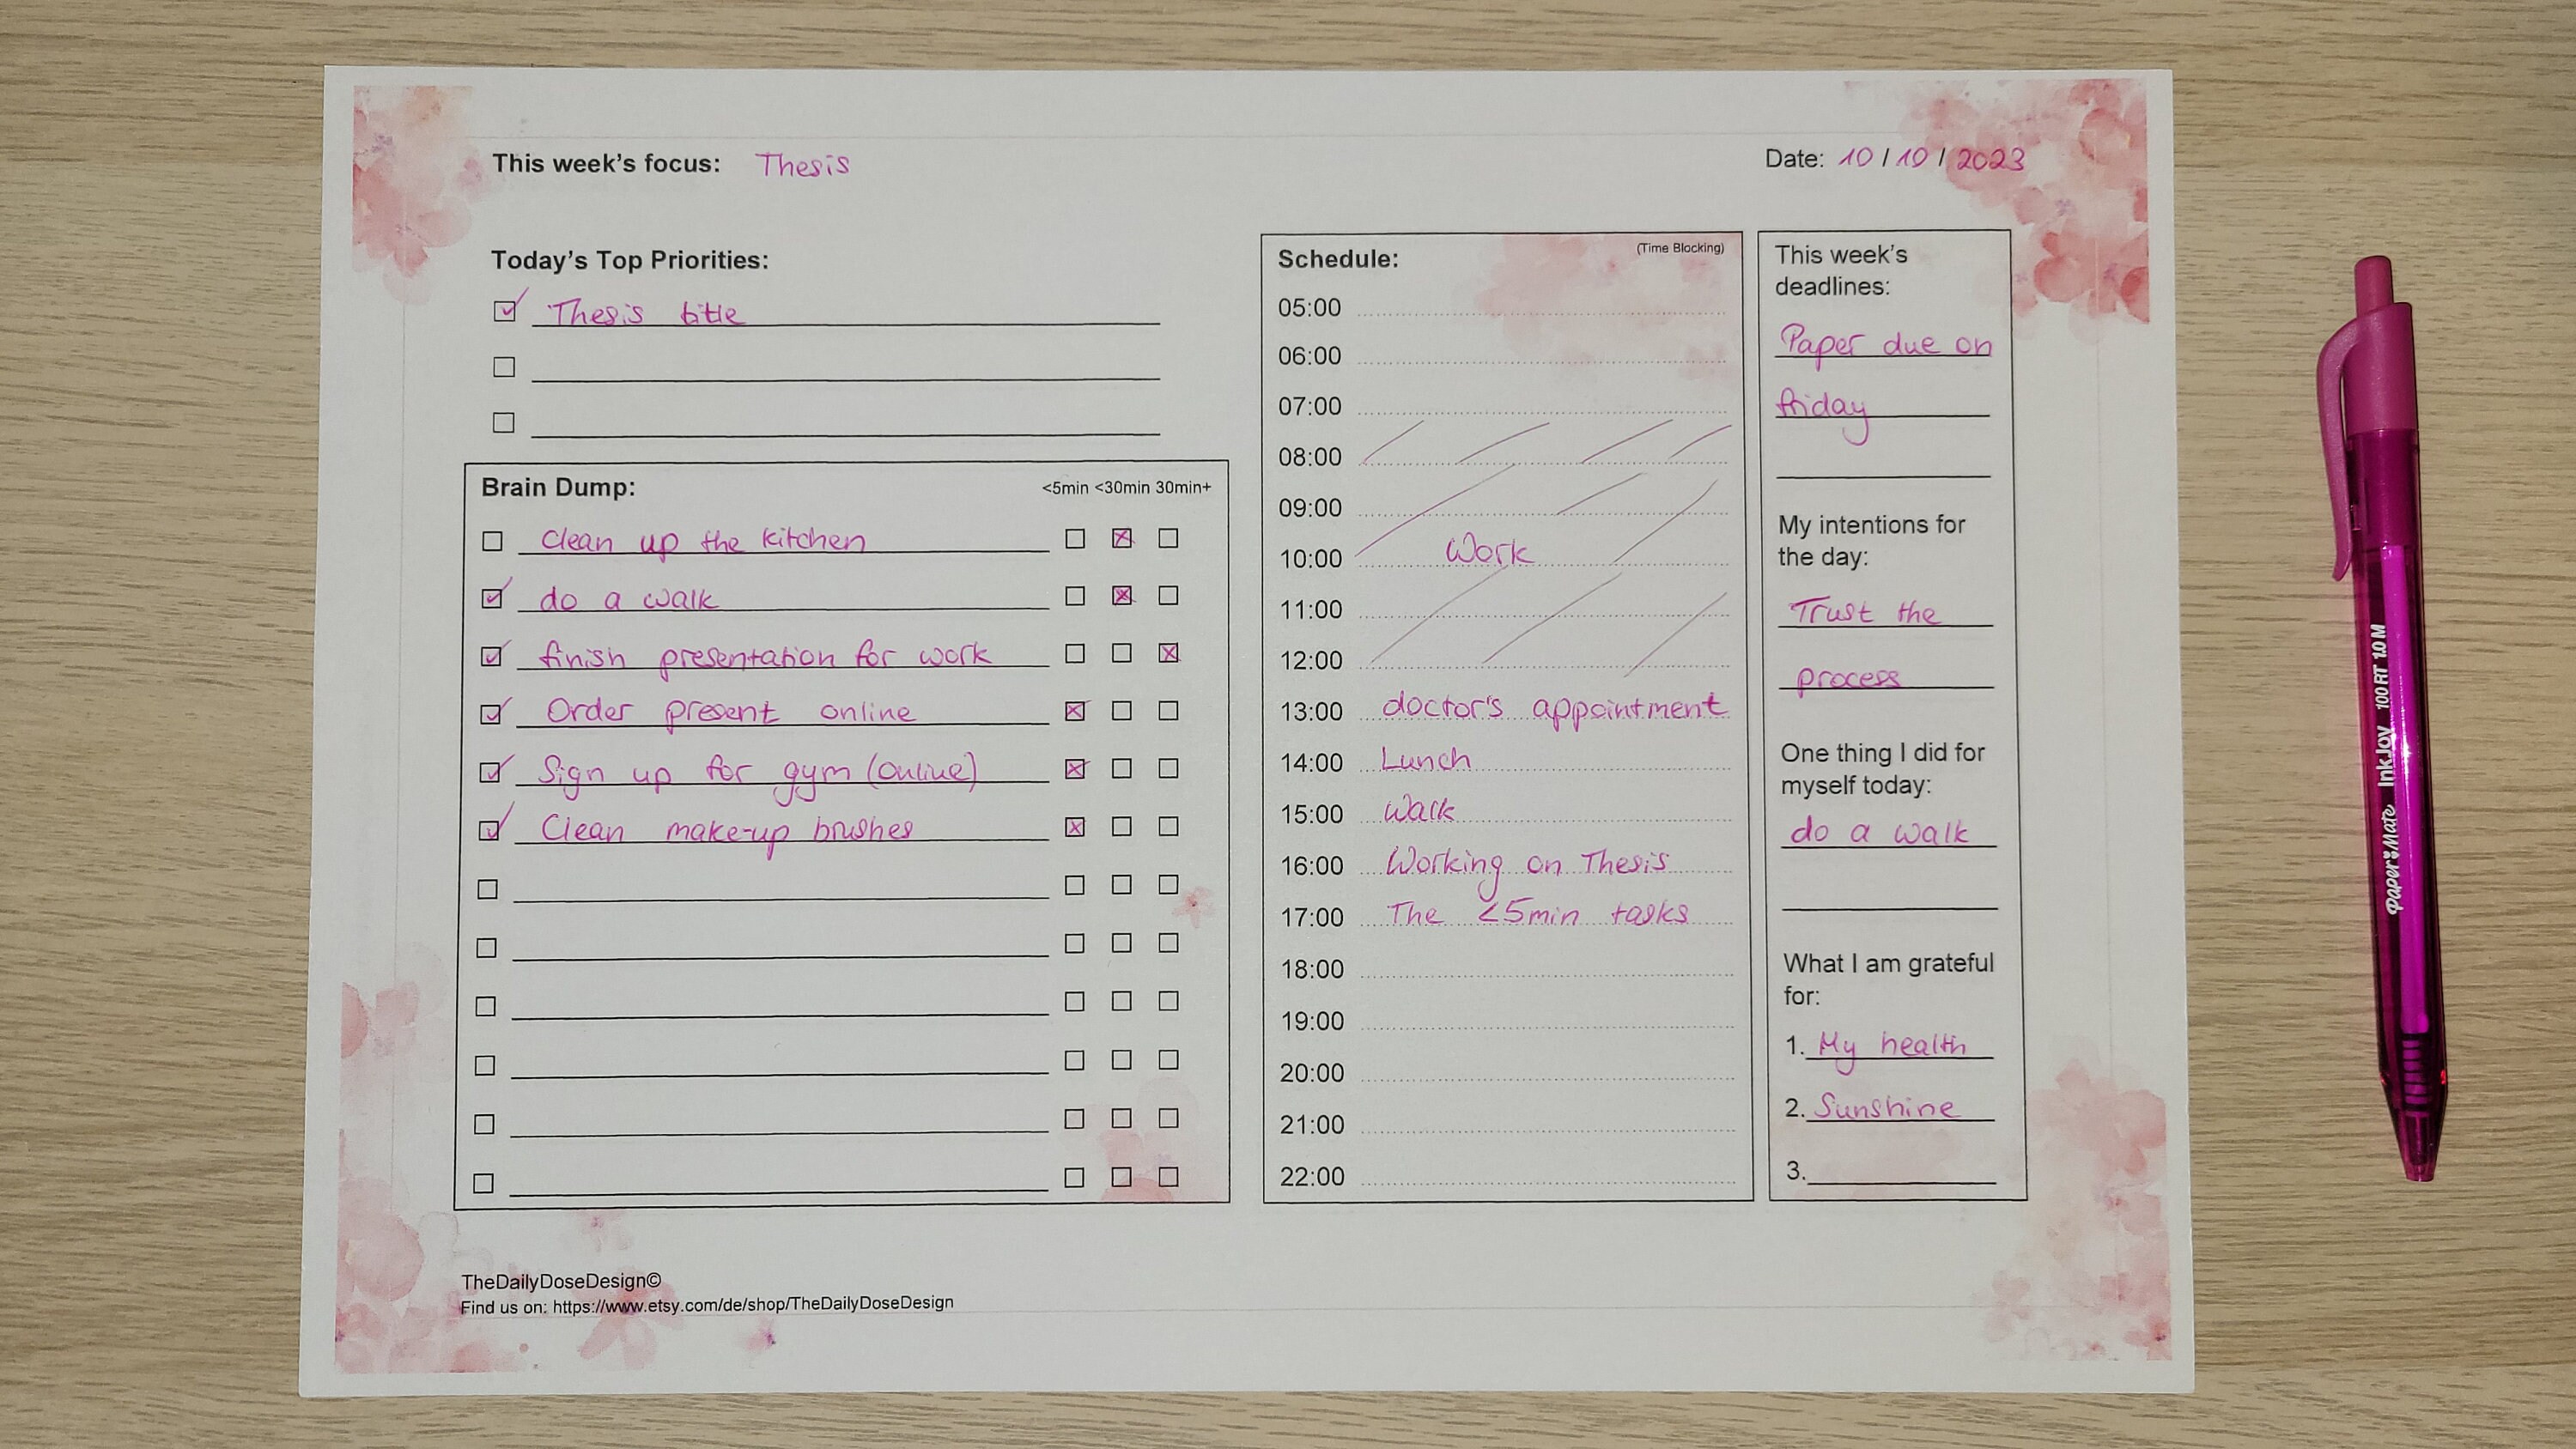 This week's focus: Thesis
Date: 10 / 10 / 2023
Today's Top Priorities:
Thesis title
Brain Dump: <5min <30min 30min+
Clean up the kitchen
do a walk
finish presentation for work
Order present online
Sign up for gym (online)
Clean make-up brushes
Schedule: (Time Blocking)
05:00
06:00
07:00
08:00
09:00
10:00 Work
11:00
12:00
13:00 doctor's appointment
14:00 Lunch
15:00 Walk
16:00 Working on Thesis
17:00 The <5min tasks
18:00
19:00
20:00
21:00
22:00
This week's
deadlines:
Paper due on
friday
My intentions for
the day:
Trust the
process
One thing I did for
myself today:
do a walk
What I am grateful
for:
1. My health
2. Sunshine
3.
TheDailyDoseDesign©
Find us on: https://www.etsy.com/de/shop/TheDailyDoseDesign
Paper Mate InkJoy 100 RT 1.0 M